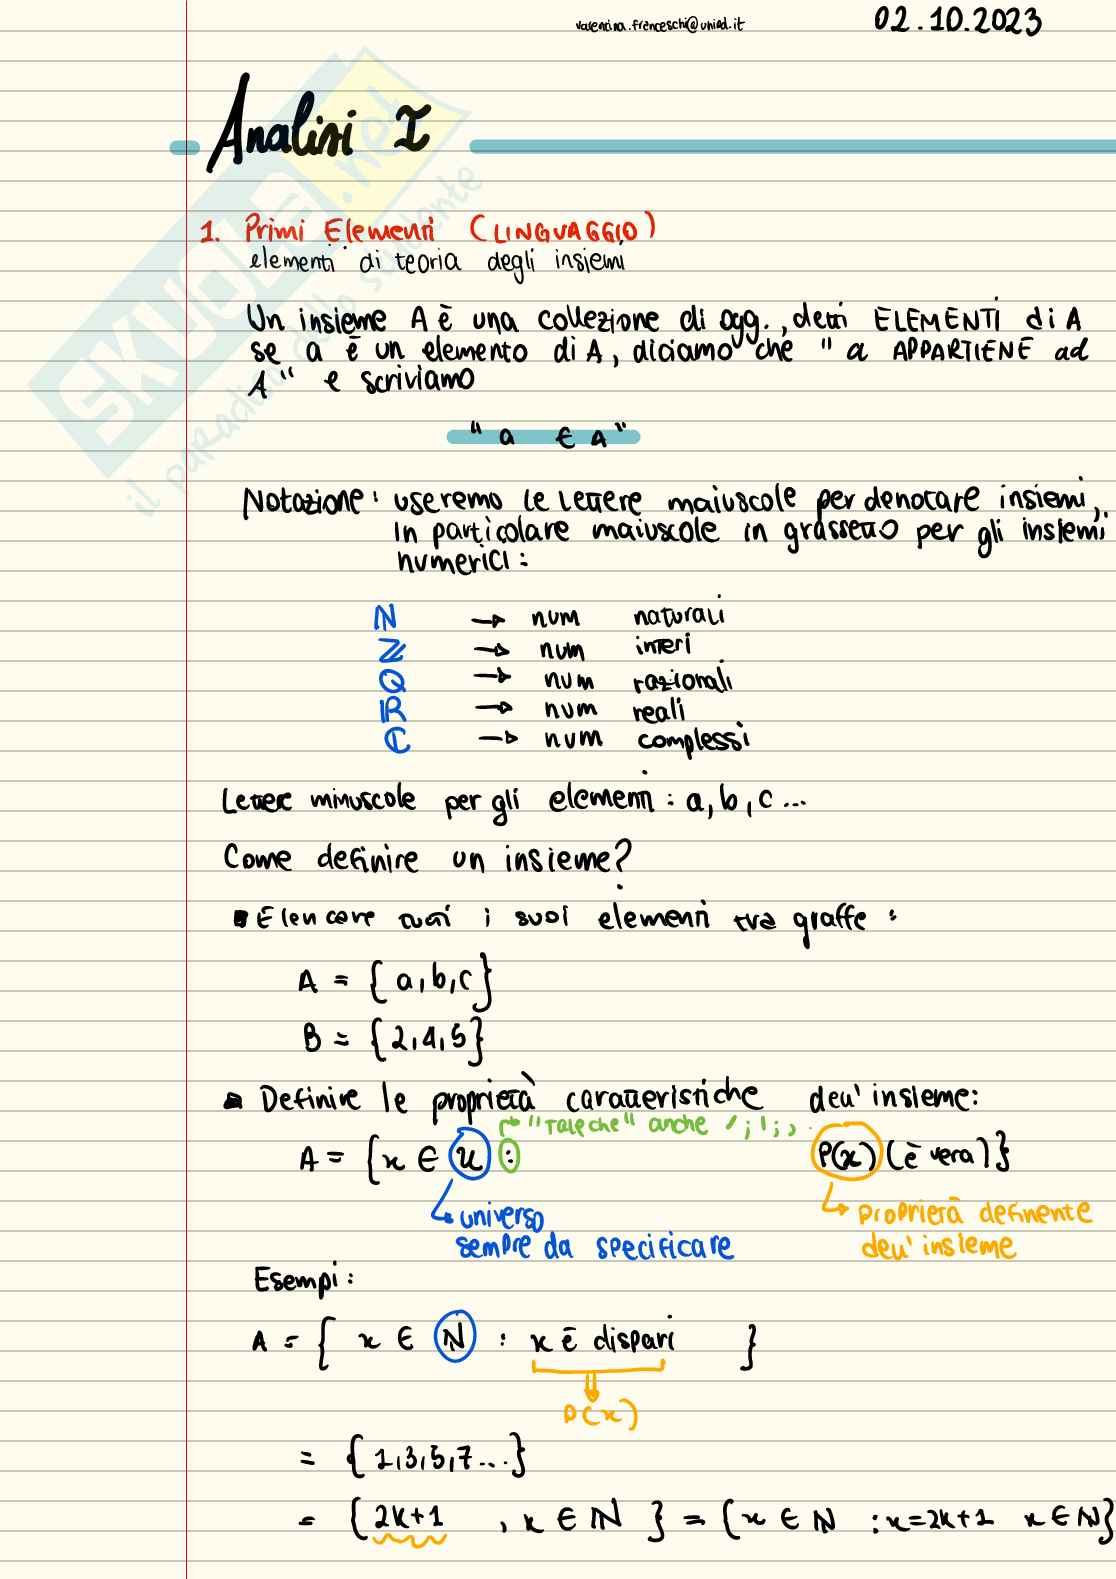 valentina.franceschi@unipd.it
02.10.2023
Analisi I
1. Primi Elementi (LINGUAGGIO)
elementi di teoria degli insiemi
Un insieme A è una collezione di ogg., detti ELEMENTI di A
se a è un elemento di A, diciamo che "a APPARTIENE ad
A" e scriviamo
"a ∈ A"
Notazione: useremo le lettere maiuscole per denotare insiemi,
in particolare maiuscole in grassetto per gli insiemi
numerici:
ℕ → num naturali
ℤ → num interi
ℚ → num razionali
ℝ → num reali
ℂ → num complessi
Lettere minuscole per gli elementi: a, b, c...
Come definire un insieme?
Elencare tutti i suoi elementi tra graffe:
A = {a, b, c}
B = {2, 4, 5}
Definire le proprietà caratteristiche dell'insieme:
→ "Tale che" anche / ; | ; ,
A = {x ∈ U : P(x) (è vera)}
universo → proprietà definente
sempre da specificare dell'insieme
Esempi:
A = { x ∈ ℕ : x è dispari }
P(x)
= {1,3,5,7...}
= {2k+1 , k ∈ ℕ} = {x ∈ ℕ : x=2k+1 x ∈ ℕ}
SKUOLA.net
il paradiso dello studente